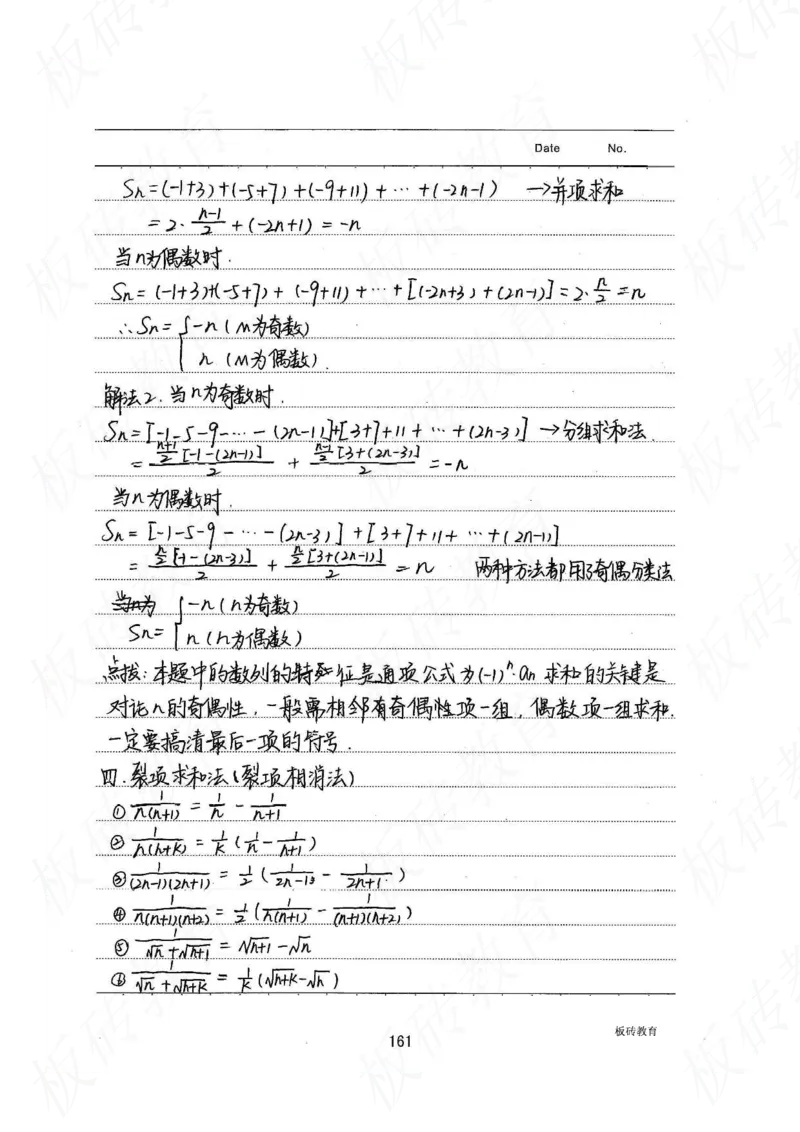 Date No.
Sn=(-1+3)+(-5+7)+(-9+11)+⋯+(-2n-1) →并项求和
=2·(n-1)/2+(-2n+1)=-n
当n为偶数时.
Sn=(-1+3)+(-5+7)+(-9+11)+⋯+[(-2n+3)+(2n-1)]=2·n/2=n
∴Sn={-n(n为奇数)
n(n为偶数).
解法2.当n为奇数时.
Sn=[-1-5-9-⋯-(2n-1)]+[3+7+11+⋯+(2n-3)] →分组求和法.
=(n+1)/2[-1-(2n-1)]/2+(n-1)/2[3+(2n-3)]/2=-n
当n为偶数时.
Sn=[-1-5-9-⋯-(2n-3)]+[3+7+11+⋯+(2n-1)]
=n/2[-1-(2n-3)]/2+n/2[3+(2n-1)]/2=n 两种方法都用了奇偶分类法
当n为 {-n(n为奇数)
Sn= n(n为偶数)
点拨:本题中的数列的特征是通项公式为(-1)ⁿ·an 求和的关键是
对论n的奇偶性,一般需相邻有奇偶性项一组,偶数项一组求和.
一定要搞清最后一项的符号.
四.裂项求和法(裂项相消法)
① 1/n(n+1)=1/n-1/(n+1)
② 1/n(n+k)=1/k(1/n-1/(n+1))
③ 1/(2n-1)(2n+1)=1/2(1/(2n-1)-1/(2n+1))
④ 1/n(n+1)(n+2)=1/2(1/n(n+1)-1/(n+1)(n+2))
⑤ 1/(√n+√n+1)=√n+1-√n
⑥ 1/(√n+√n+k)=1/k(√n+k-√n)
板砖教育
161